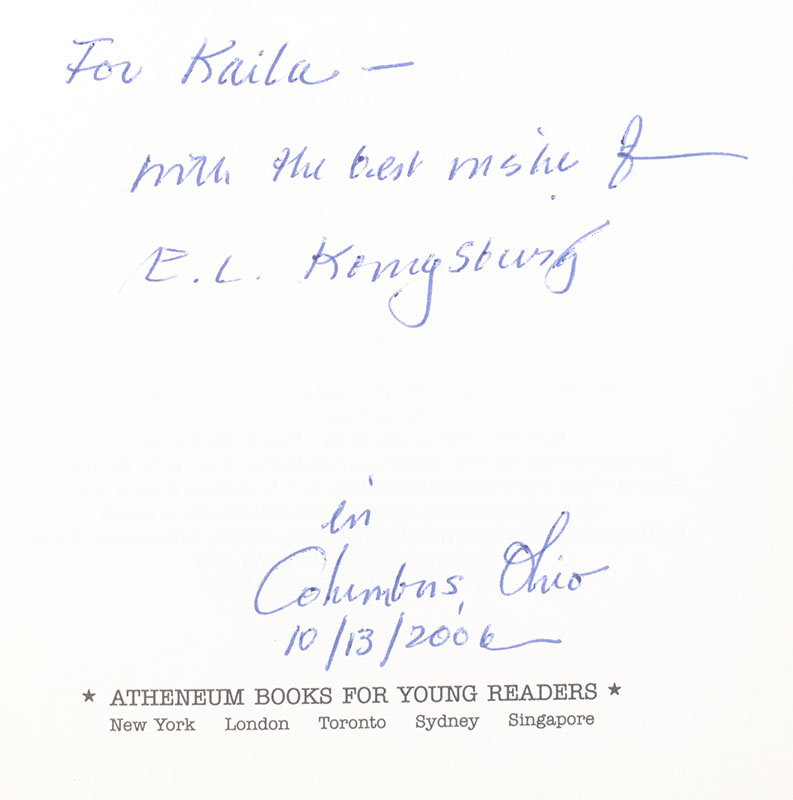 For Kaila —
with the best wishes of
E. L. Konigsburg
in
Columbus, Ohio
10/13/2006
★ ATHENEUM BOOKS FOR YOUNG READERS ★
New York London Toronto Sydney Singapore